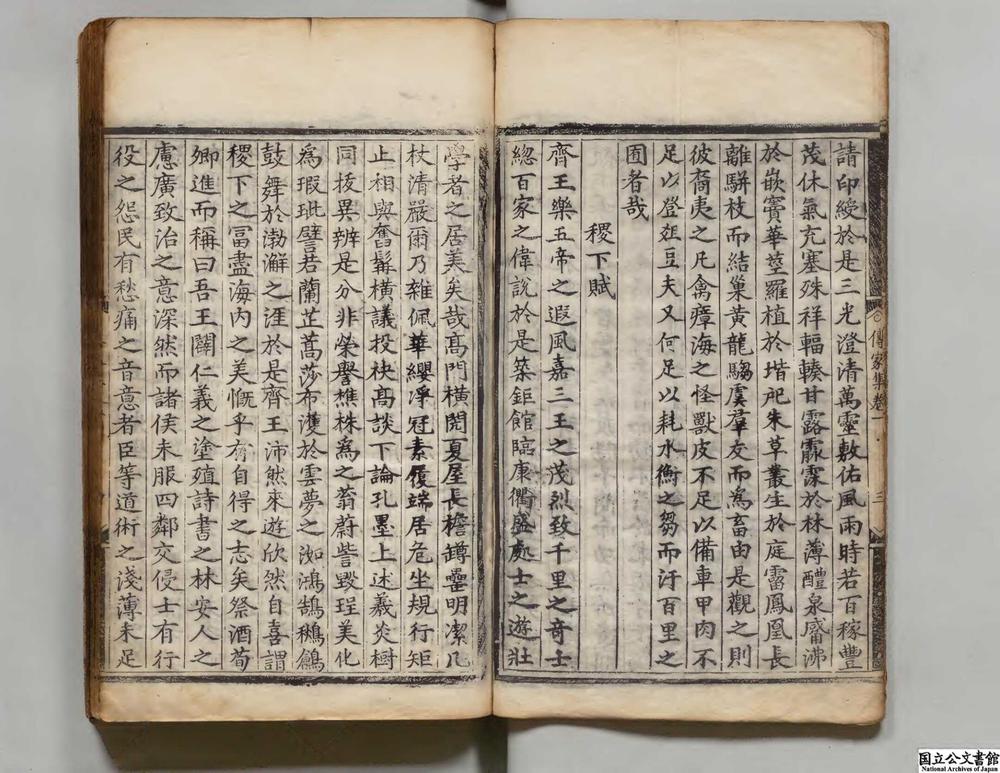 請印綬於是三光澄清萬靈敷佑風雨時若百稼豐
茂休氣充塞殊祥輻輳甘露霢霂於林薄醴泉觱沸
於嵌竇華莖羅植於堦戺朱草叢生於庭霤鳳凰長
離駢枝而結巢黃龍騶虞群友而為畜由是觀之則
彼裔夷之凡禽瘴海之怪獸皮不足以備車甲肉不
足以登俎豆夫又何足以耗水衡之芻而汙百里之
囿者哉
稷下賦
齊王樂五帝之遐風嘉三王之茂烈致千里之奇士
緫百家之偉說於是築鉅館臨康衢盛處士之遊壯
傳家集卷一
三
學者之居美矣哉髙門橫閌夏屋長檐罇罍明潔几
杖清嚴爾乃雜佩華纓淨冠素履端居危坐規行矩
止相與奮髯橫議投袂髙談下論孔墨上述羲炎樹
同拔異辨是分非榮譽樵株為之蓊蔚訾毀珵美化
為瑕玼譬若蘭芷蒿莎布濩於雲夢之泇鴻鵠鶖鶬
鼓舞於渤澥之涯於是齊王沛然來遊欣然自喜謂
稷下之富盡海内之美慨乎有自得之志矣祭酒荀
卿進而稱曰吾王闢仁義之塗殖詩書之林安人之
慮廣致治之意深然而諸侯未服四鄰交侵士有行
役之怨民有愁痛之音意者臣等道術之淺薄未足
国立公文書館
National Archives of Japan